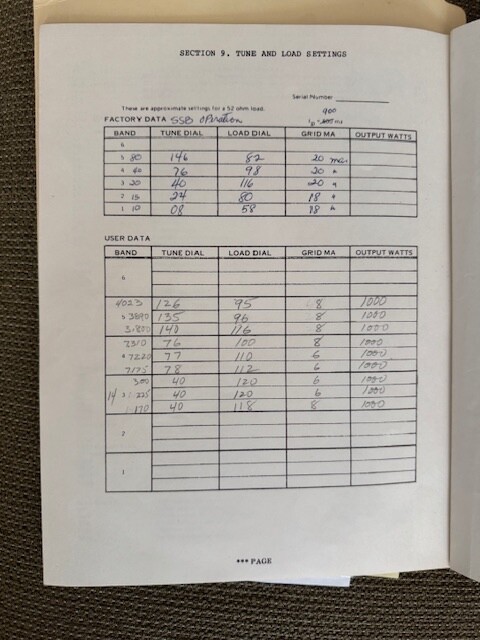 SECTION 9. TUNE AND LOAD SETTINGS
Serial Number
These are approximate settings for a 52 ohm load.
900
FACTORY DATA SSB Operation
BAND TUNE DIAL LOAD DIAL GRID MA OUTPUT WATTS
6
5 80 146 82 20 mas
4 40 76 98 20 "
3 20 40 116 20 "
2 15 24 80 18 "
1 10 08 58 18 "
USER DATA
BAND TUNE DIAL LOAD DIAL GRID MA OUTPUT WATTS
6
4023 126 95 8 1000
5 3890 135 96 8 1000
3.800 140 116 8 1000
7310 76 100 8 1000
4 7220 77 110 6 1000
7175 78 112 6 1000
300 40 120 6 1000
14 3 225 40 120 6 1000
170 40 118 8 1000
2
1
*** PAGE